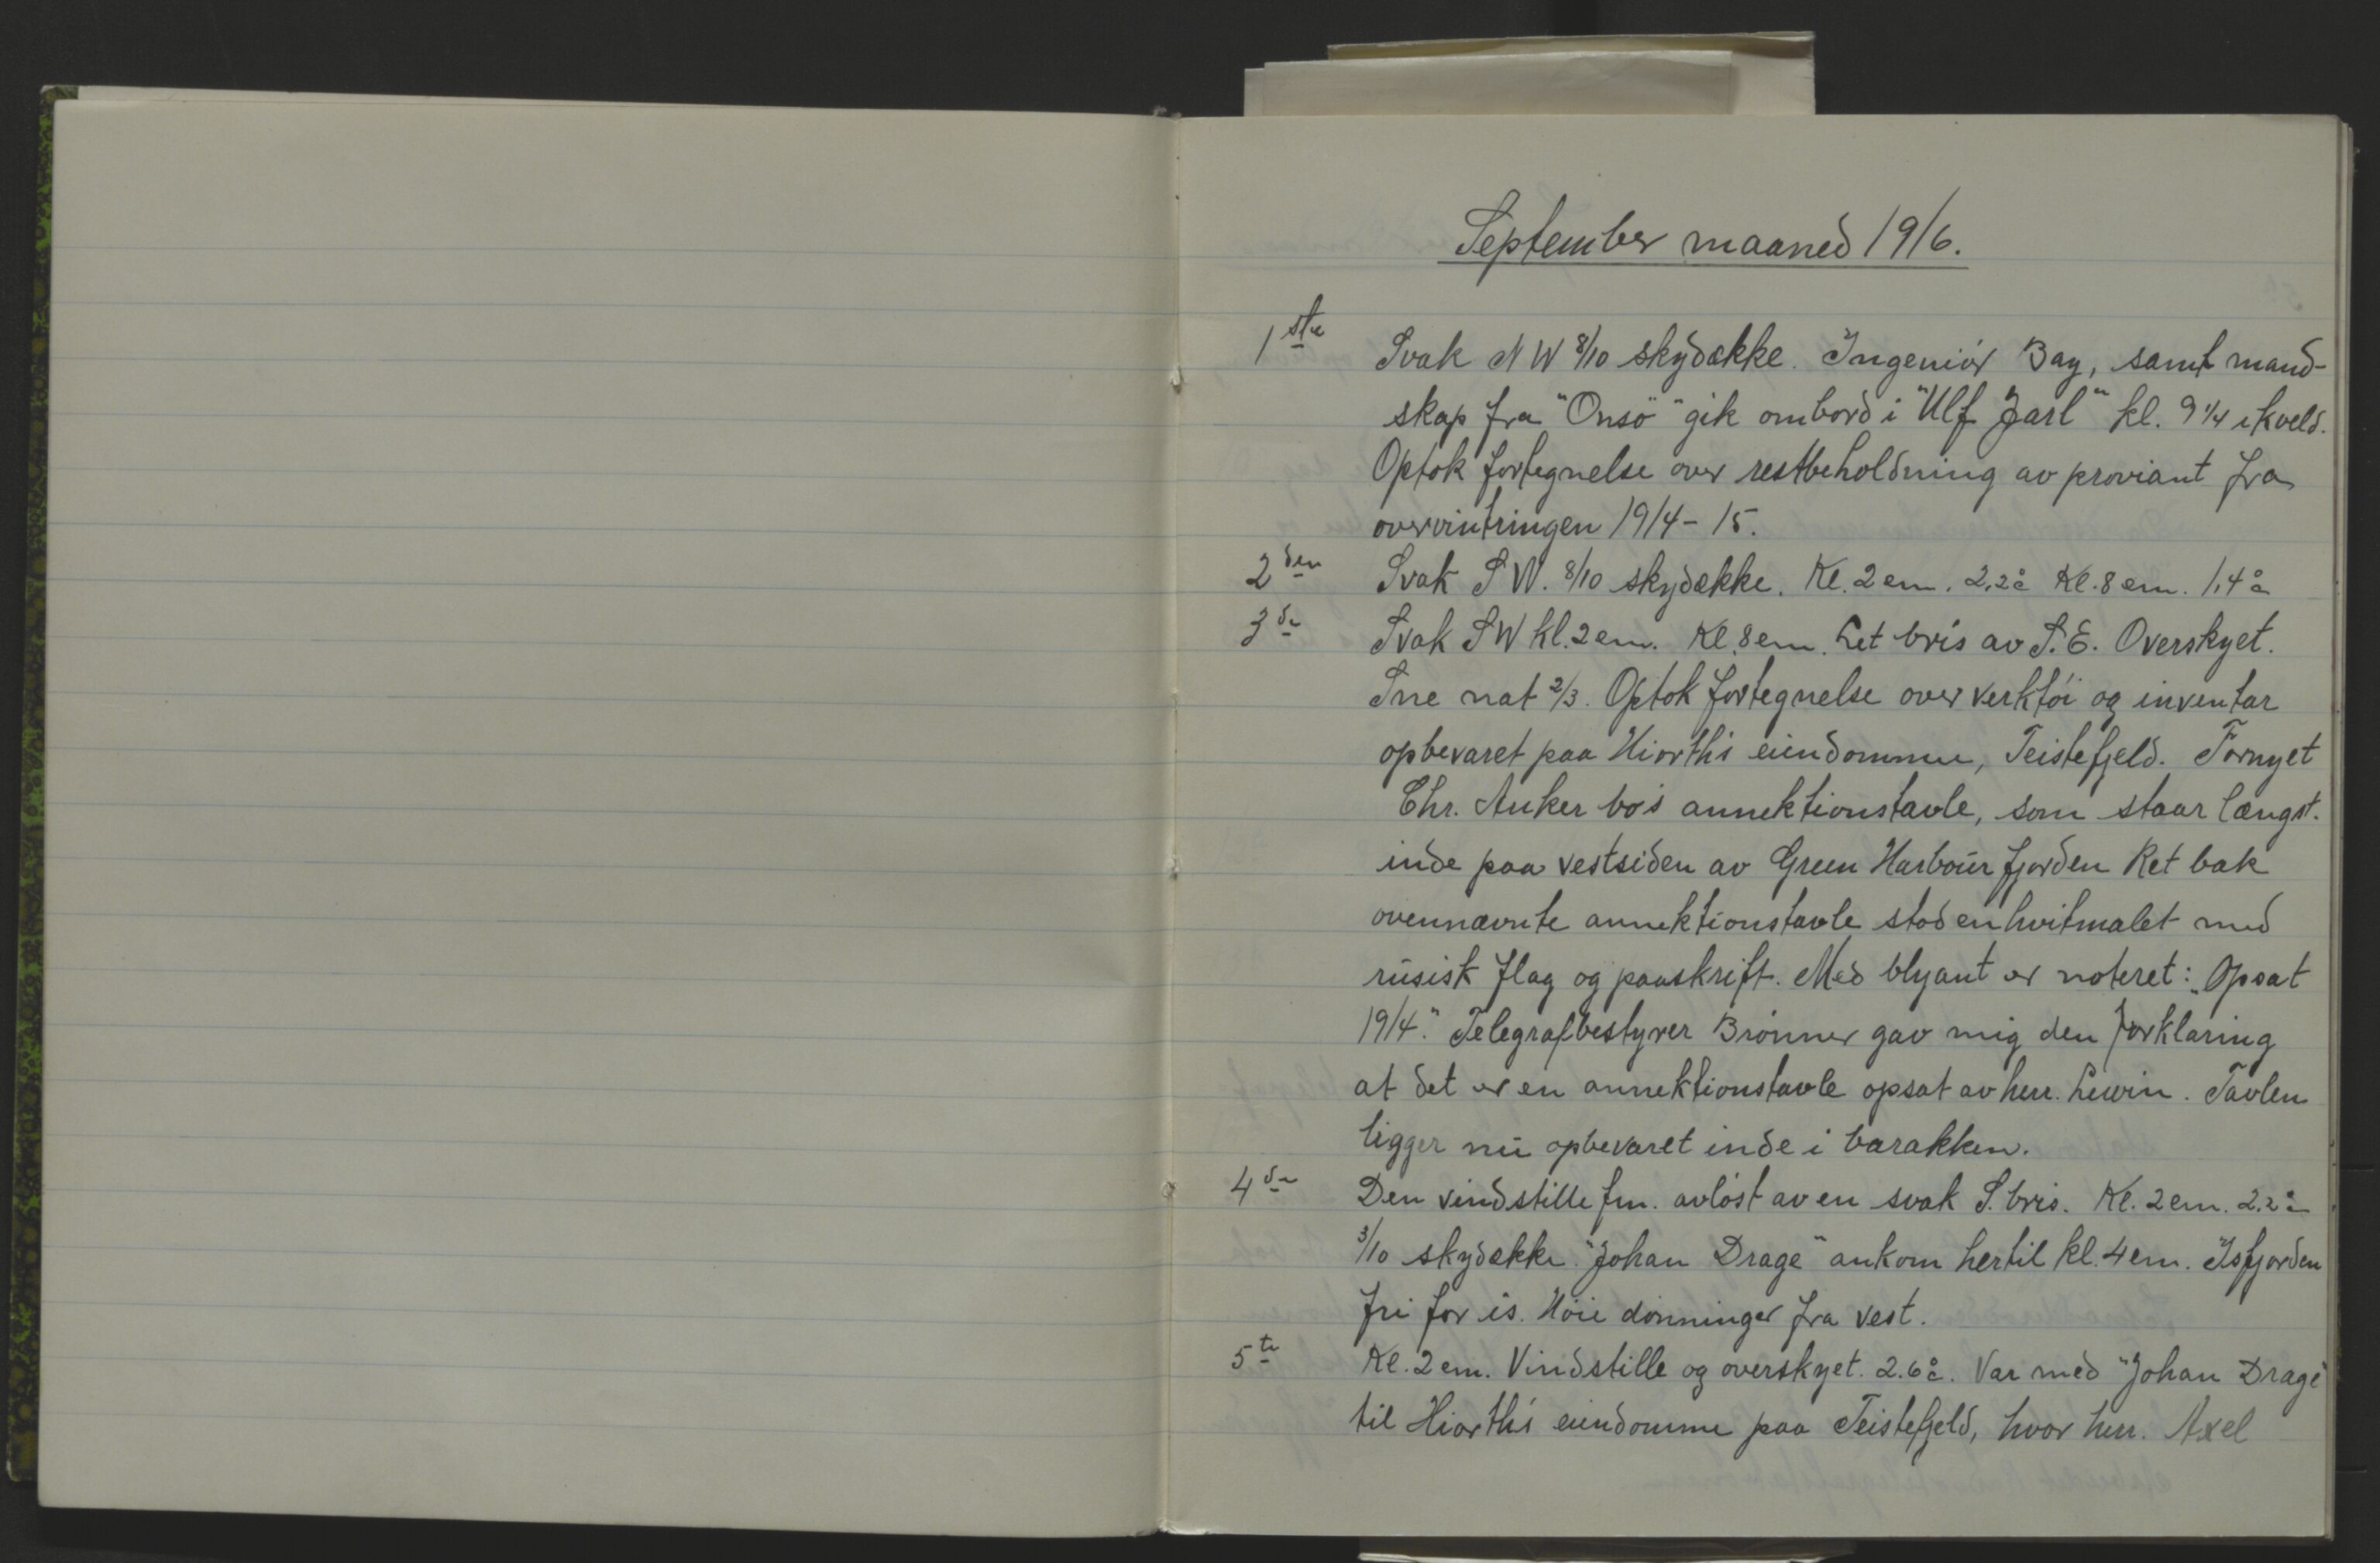 September maaned 1916.
1ste Svak NW 8/10 skydække. Ingeniör Bay, samt mand-
skap fra "Onsö" gik ombord i "Ulf Jarl" kl. 9 1/4 ikveld.
Optok fortegnelse over restbeholdning av proviant fra
overvintringen 1914-15.
2den Svak SW. 8/10 skydække. Kl. 2 em. 2,2°c Kl. 8 em. 1,4°c
3de Svak SW kl. 2 em. Kl. 8 em. Let bris av S.E. Overskyet.
Sne nat 2/3. Optok fortegnelse over verktöi og inventar
opbevaret paa Hiorth's eiendomme, Teistefjeld. Fornyet
Chr. Anker bo's annektionstavle, som staar længst.
inde paa vestsiden av Green Harbour fjorden Ret bak
ovennævnte annektionstavle stod en hvitmalet med
rusisk flag og paaskrift. Med blyant er noteret: "Opsat
1914." Telegrafbestyrer Brönner gav mig den forklaring
at det er en annektionstavle opsat av herr. Lewin. Tavlen
ligger nu opbevaret inde i barakken.
4de Den vindstille fm. avlöst av en svak S. bris. Kl. 2 em. 2.2°c
3/10 skydække. "Johan Drage" ankom hertil kl. 4 em. Isfjorden
fri for is. Höie dönninger fra vest.
5te Kl. 2 em. Vindstille og overskyet. 2.6°c. Var med "Johan Drage"
til Hiorth's eiendomme paa Teistefjeld, hvor herr. Axel